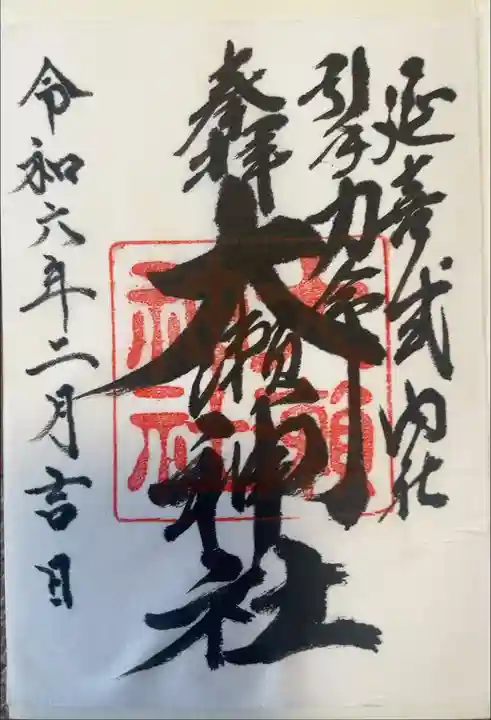 延喜式内社
引手力命
奉拝
大瀬神社
令和六年二月吉日
大瀬
神社